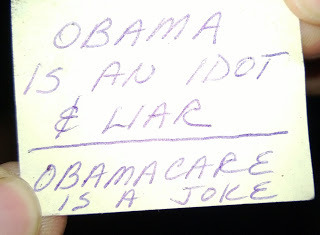 OBAMA
IS AN IDOT
& LIAR
OBAMACARE
IS A JOKE